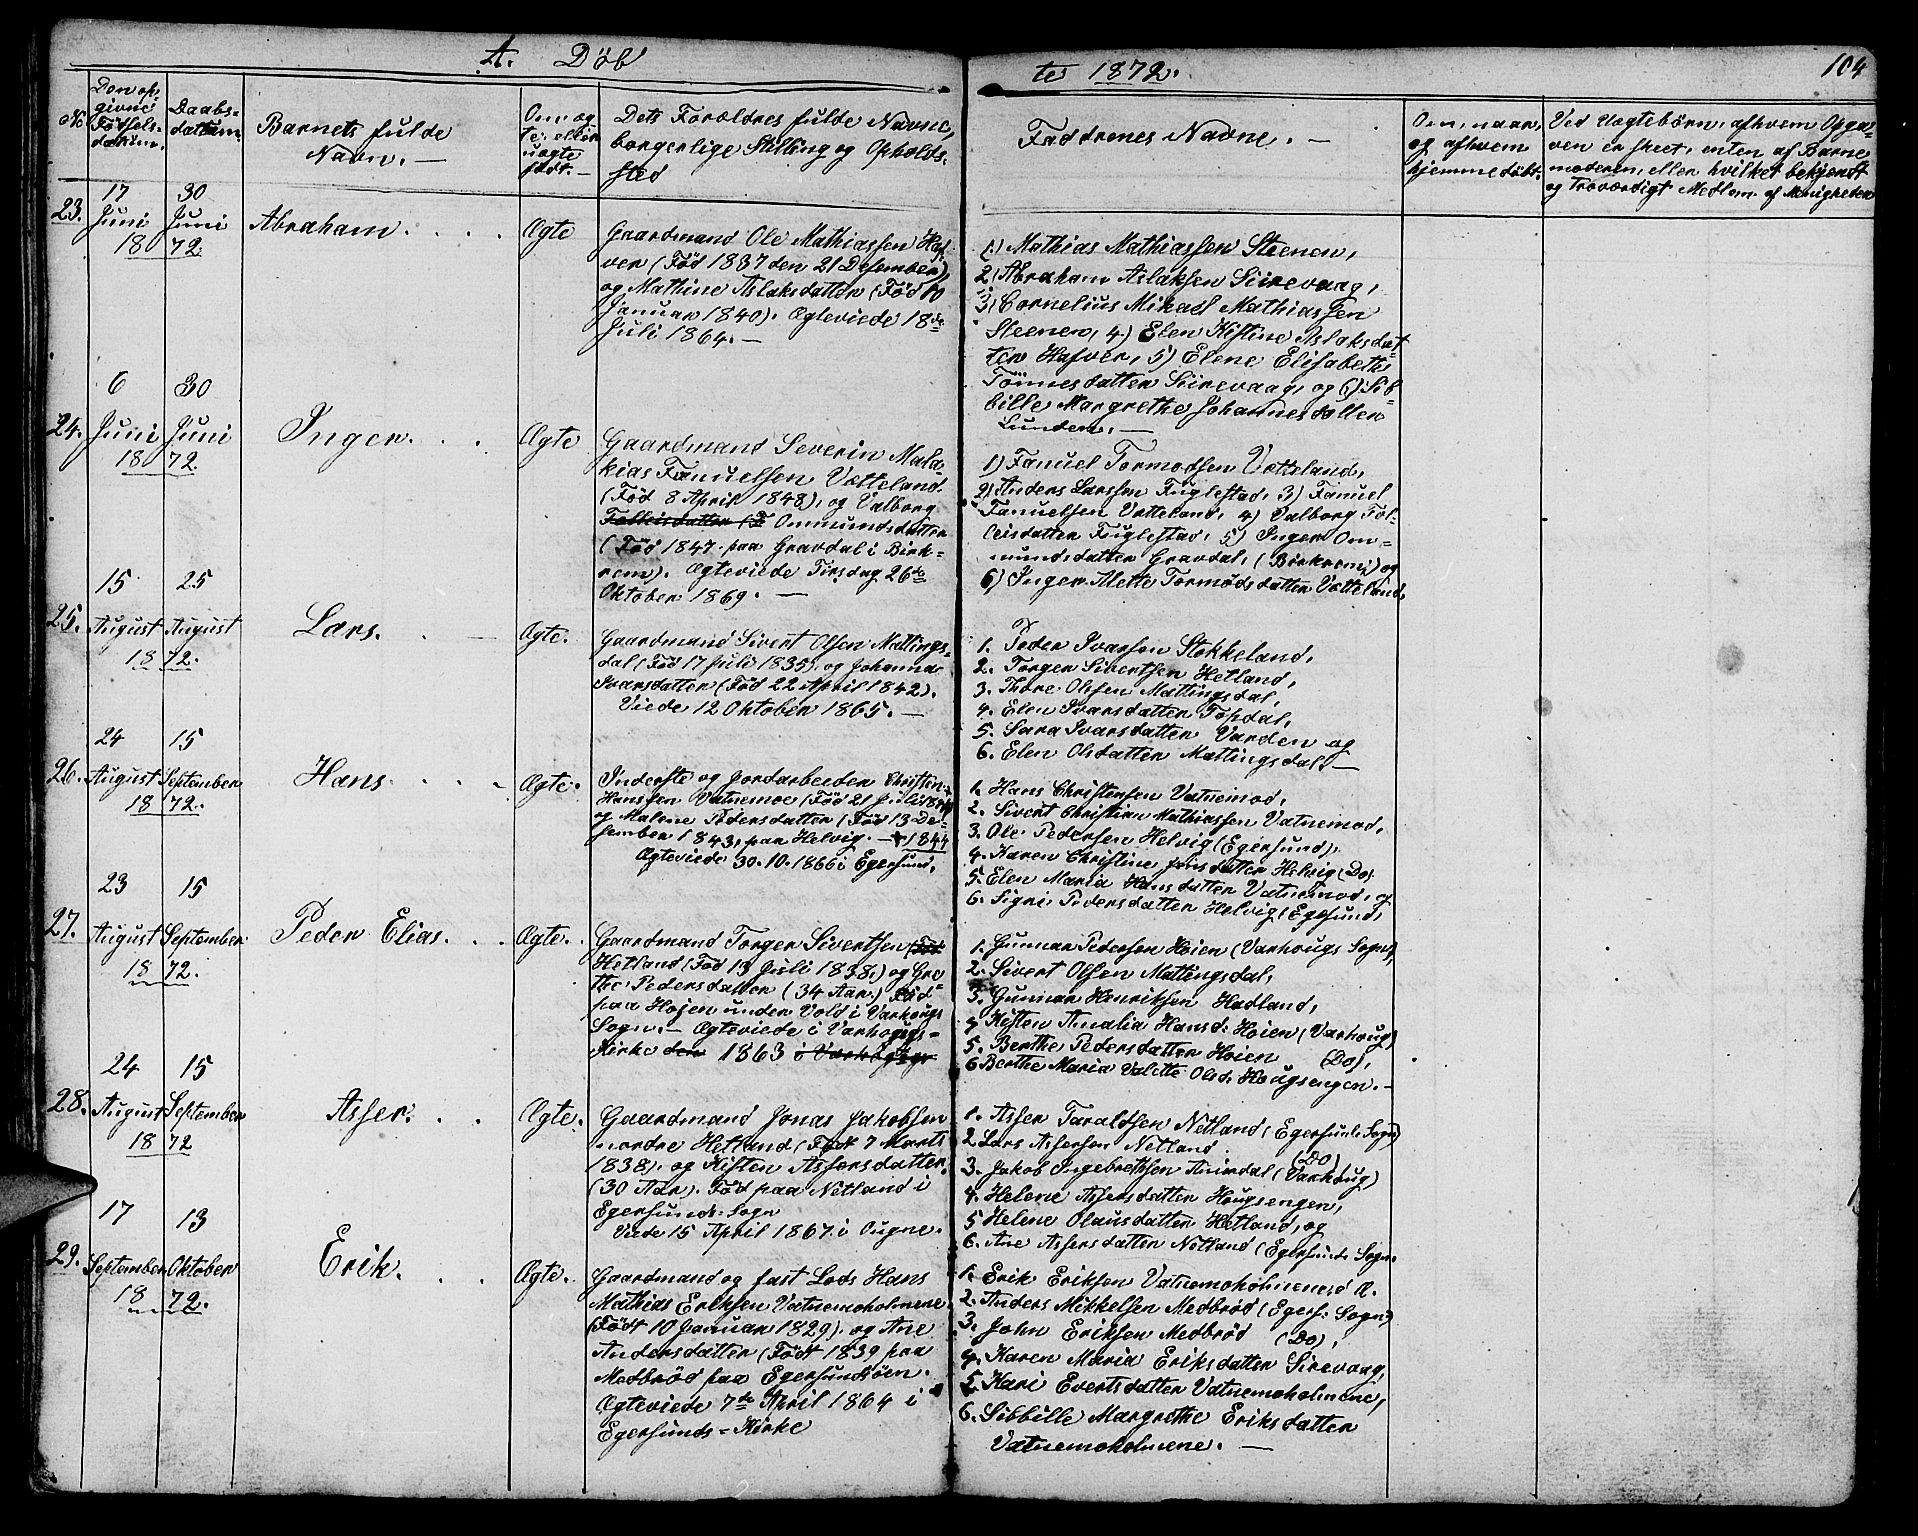 A. Döb
te 1872.
104
No
Den op-
givne
Fødsels-
datum.
Daabs-
dattum
Barnets fulde
Navn. —
Om æg-
te, eller
uægte
født. —
Dets Forældres fulde Navne,
borgerlige Stilling og Opholds-
sted
Faddrenes Navne. —
Om, naar,
og afhvem
hjemmedöbt.
Ved Uægtebörn, afhvem Opga-
ven er skeet, enten af Barne
moderen, eller hvilket bekjendt
og Troværdigt Medlem af Menigheden
23.
17
Juni
18
30
Juni
72.
Abraham . . . .
Ægte
Gaardmand Ole Mathiassen Haf-
ver (Född 1837 den 21 Desember),
og Mathine Aslaksdatter (Föd 10
Januar 1840). Ægteviede 18de
Juli 1864. —
1) Mathias Mathiassen Steenen,
2) Abraham Aslaksen Siirevaag,
3) Cornelius Mikael Mathiassen
Steenen, 4) Elen Kistine Aslaksdat-
ter Hafver, 5) Elene Elisabeth
Tönnesdatter Siirevaag, og 6) Sib-
bille Margrethe Johannesdatter
Lunden. —
24.
6
Juni
18
30
Juni
72.
Inger. . .
Ægte
Gaardmand Severin Mala-
kias Fanuelsen Vætteland.
(Föd 8 April 1848), og Valborg
Folleisdatter (F Ommundsdatter
(Föd 1847 paa Gravdal i Birk-
rem). Ægteviede Tirsdag 26de
Oktober 1869. —
1) Fanuel Tormodsen Vætteland,
2) Anders Larssen Fuglestad, 3) Fanuel
Fanuelsen Vætteland, 4) Valborg Fol-
leisdatter Fuglestad, 5) Inger Om-
mundsdatter Gravdal, (Birkrem) og
6) Inger Alette Tormodsdatter Vætteland.
25.
15
August
18
25
August
72.
Lars. . —
Ægte.
Gaardmand Sivert Olsen Mattings-
dal (Föd 17 Juli 1835), og Johanna
Ivarsdatter (Föd 22 April 1842).
Viede 12 Oktober 1865. —
1. Peder Ivarsen Stokkeland,
2. Torger Sivertsen Hetland,
3. Thore Olssen Mattingsdal,
4. Elen Ivarsdatter Topdal,
5. Sara Ivarsdatter Varden og
6. Elen Olsdatter Mattingsdal. —
26.
24
August
18
15
September
72.
Hans . . .
Ægte.
Inderste og Jordarbeider Christen
Hanssen Vatnemoe (Föd 21 Juli
og Malene Pedersdatter (Föd 13 De-
sember 1843, paa Helvig. — 1844
Ægteviede 30.10.1866 i Egersund.
1. Hans Christensen Vatnemod,
2. Sivert Christian Mathiassen Vatnemod,
3. Ole Pedersen Helvig (Egersund),
4. Karen Christine Jonsdatter Helvig (Do).
5. Elen Maria Hansdatter Vatnemod, og
6. Signi Pedersdatter Helvig, Egersund,
27.
23
August
18
15
September
72.
Peder Elias. . .
Ægte.
Gaardmand Torger Sivertsen (Föd
Hetland (Föd 13 Juli 1838.) og Gre-
the Pedersdatter (34 Aar.) Föd
paa Höjen under Vold i Varhougs
Sogn. — Ægteviede i Varhougs-
Kirke den 1863
1. Gunnar Pedersen Höien (Varhougs Sogn),
2. Sivert Olsen Mattingsdal,
3. Gunnar Henriksen Hadland,
4 Kisten Amalia Hansd: Höien (Varhoug)
5. Berthe Pedersdatter Höien (Do),
6 Berthe Maria Valette Olsd: Hougsengen. —
28.
24
August
18
15
September
72
Asser. . .
Ægte.
Gaardmand Jonas Jakobsen
nordre Hetland (Född 7 Marts
1838), og Kisten Assersdatter,
(30 Aar). Föd paa Netland i
Egersunds Sogn
Viede 15 April 1867. i Ougne.
1. Asser Taraldsen Netland (Egersunds Sogn)
2. Lars Assersen Netland (Do)
3. Jakob Ingebretsen Aniedal (Varhoug)
4. Helene Assersdatter Hougsengen,
5 Helene Olausdatter Hetland, og
6. Ane Assersdatter Netland (Egersunds Sogn.
29.
17
September
18
13
Oktober
72.
Erik. . .
Ægte.
Gaardmand og fast Lods Hans
Mathias Eriksen Vatnemoholmene
(Född 10 Januar 1829), og Ane
Andersdatter (Född 1839 paa
Medbröd paa Egersundsöen.
Ægteviede 7de April 1864 i
Egersunds = Kirke
1. Erik Eriksen Vatnemoholmene
2. Anders Mikkelsen Medbröd (Egers: Sogn)
3. John Eriksen Medbröd (Do),
4. Karen Maria Eriksdatter Sirevaag,
5. Kari Evertsdatter Vatnemoholmene,
6. Sibbille Margrethe Eriksdatter
Vatnemoholmene. —